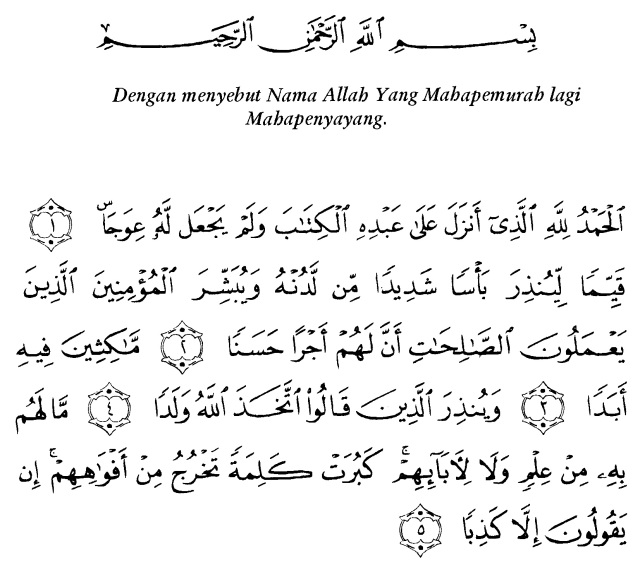 بِسْمِ ٱللَّهِ ٱلرَّحْمَٰنِ ٱلرَّحِيمِ
Dengan menyebut Nama Allah Yang Mahapemurah lagi
Mahapenyayang.
ٱلْحَمْدُ لِلَّهِ ٱلَّذِىٓ أَنزَلَ عَلَىٰ عَبْدِهِ ٱلْكِتَٰبَ وَلَمْ يَجْعَل لَّهُۥ عِوَجَاۜ ١
قَيِّمًا لِّيُنذِرَ بَأْسًا شَدِيدًا مِّن لَّدُنْهُ وَيُبَشِّرَ ٱلْمُؤْمِنِينَ ٱلَّذِينَ
يَعْمَلُونَ ٱلصَّٰلِحَٰتِ أَنَّ لَهُمْ أَجْرًا حَسَنًا ٢ مَّٰكِثِينَ فِيهِ
أَبَدًا ٣ وَيُنذِرَ ٱلَّذِينَ قَالُوا۟ ٱتَّخَذَ ٱللَّهُ وَلَدًا ٤ مَّا لَهُم
بِهِۦ مِنْ عِلْمٍ وَلَا لِءَابَآئِهِمْ ۚ كَبُرَتْ كَلِمَةً تَخْرُجُ مِنْ أَفْوَٰهِهِمْ ۚ إِن
يَقُولُونَ إِلَّا كَذِبًا ٥